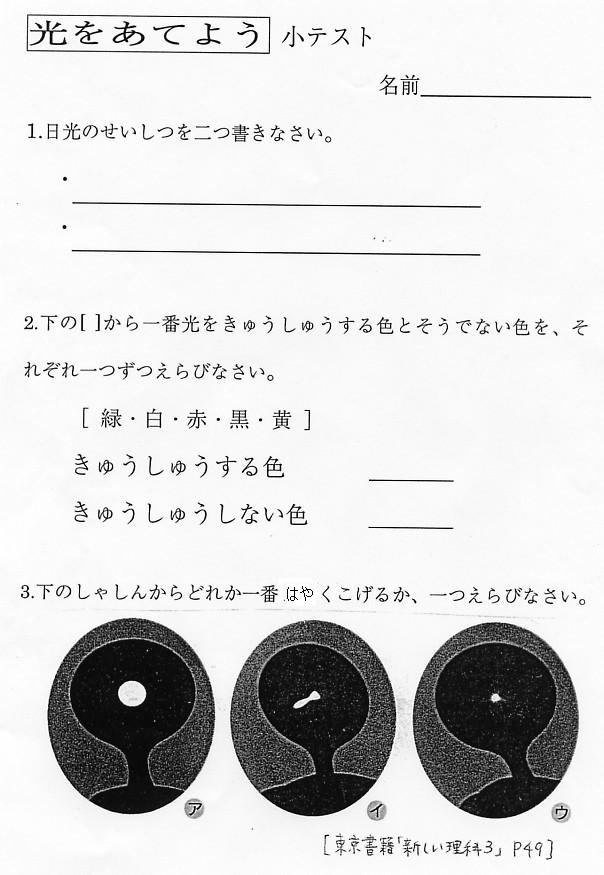 光をあてよう 小テスト
名前
1.日光のせいしつを二つ書きなさい。
・
・
2.下の[ ]から一番光をきゅうしゅうする色とそうでない色を、そ
れぞれ一つずつえらびなさい。
[ 緑・白・赤・黒・黄 ]
きゅうしゅうする色
きゅうしゅうしない色
3.下のしゃしんからどれか一番はやくこげるか、一つえらびなさい。
ア イ ウ
[東京書籍「新しい理科3」P49]